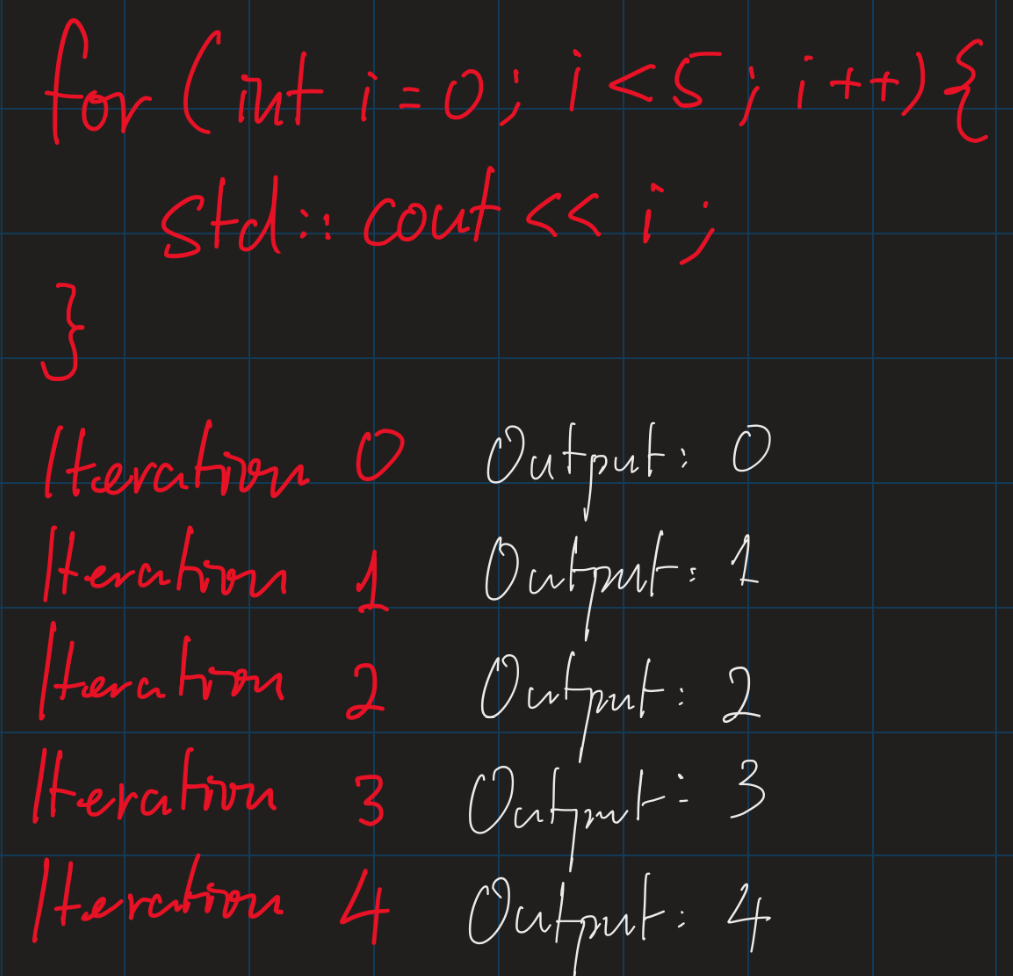 for (int i=0; i<5; i++){
std::cout << i;
}
Iteration 0 Output: 0
Iteration 1 Output: 1
Iteration 2 Output: 2
Iteration 3 Output: 3
Iteration 4 Output: 4